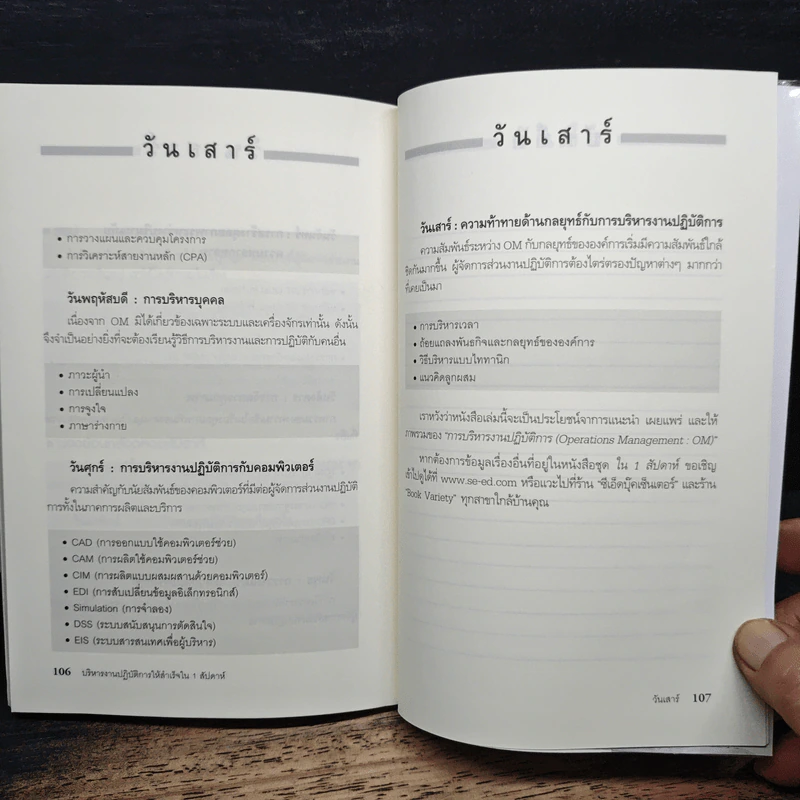 วันเสาร์
• การวางแผนและควบคุมโครงการ
• การวิเคราะห์สายงานหลัก (CPA)
วันพฤหัสบดี : การบริหารบุคคล
เนื่องจาก OM มิได้เกี่ยวข้องเฉพาะระบบและเครื่องจักรเท่านั้น ดังนั้น
จึงจำเป็นอย่างยิ่งที่จะต้องเรียนรู้วิธีการบริหารงานและการปฏิบัติกับคนอื่น
• ภาวะผู้นำ
• การเปลี่ยนแปลง
• การจูงใจ
• ภาษาร่างกาย
วันศุกร์ : การบริหารงานปฏิบัติการกับคอมพิวเตอร์
ความสำคัญกับนัยสัมพันธ์ของคอมพิวเตอร์ที่มีต่อผู้จัดการส่วนงานปฏิบัติ
การทั้งในภาคการผลิตและบริการ
• CAD (การออกแบบใช้คอมพิวเตอร์ช่วย)
• CAM (การผลิตใช้คอมพิวเตอร์ช่วย)
• CIM (การผลิตแบบผสมผสานด้วยคอมพิวเตอร์)
• EDI (การสับเปลี่ยนข้อมูลอิเล็กทรอนิกส์)
• Simulation (การจำลอง)
• DSS (ระบบสนับสนุนการตัดสินใจ)
• EIS (ระบบสารสนเทศเพื่อผู้บริหาร)
106 บริหารงานปฏิบัติการให้สำเร็จใน 1 สัปดาห์
วันเสาร์
วันเสาร์ : ความท้าทายด้านกลยุทธ์กับการบริหารงานปฏิบัติการ
ความสัมพันธ์ระหว่าง OM กับกลยุทธ์ขององค์การเริ่มมีความสัมพันธ์ใกล้
ชิดกันมากขึ้น ผู้จัดการส่วนงานปฏิบัติการต้องไตร่ตรองปัญหาต่างๆ มากกว่า
ที่เคยเป็นมา
• การบริหารเวลา
• ถ้อยแถลงพันธกิจและกลยุทธ์ขององค์การ
• วิธีบริหารแบบไททานิก
• แนวคิดลูกผสม
เราหวังว่าหนังสือเล่มนี้จะเป็นประโยชน์จาการแนะนำ เผยแพร่ และให้
ภาพรวมของ "การบริหารงานปฏิบัติการ (Operations Management : OM)"
หากต้องการข้อมูลเรื่องอื่นที่อยู่ในหนังสือชุด ใน 1 สัปดาห์ ขอเชิญ
เข้าไปดูได้ที่ www.se-ed.com หรือแวะไปที่ร้าน "ซีเอ็ดบุ๊คเซ็นเตอร์" และร้าน
"Book Variety" ทุกสาขาใกล้บ้านคุณ
วันเสาร์ 107